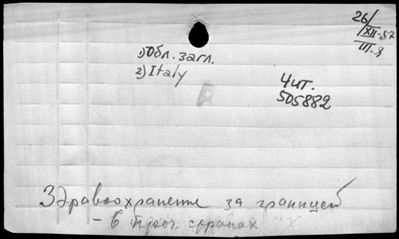 26/
XII-57
III.3
1) Обл. загл.
2) Italy
Чит.
505882
Здравоохранение за границей
- в